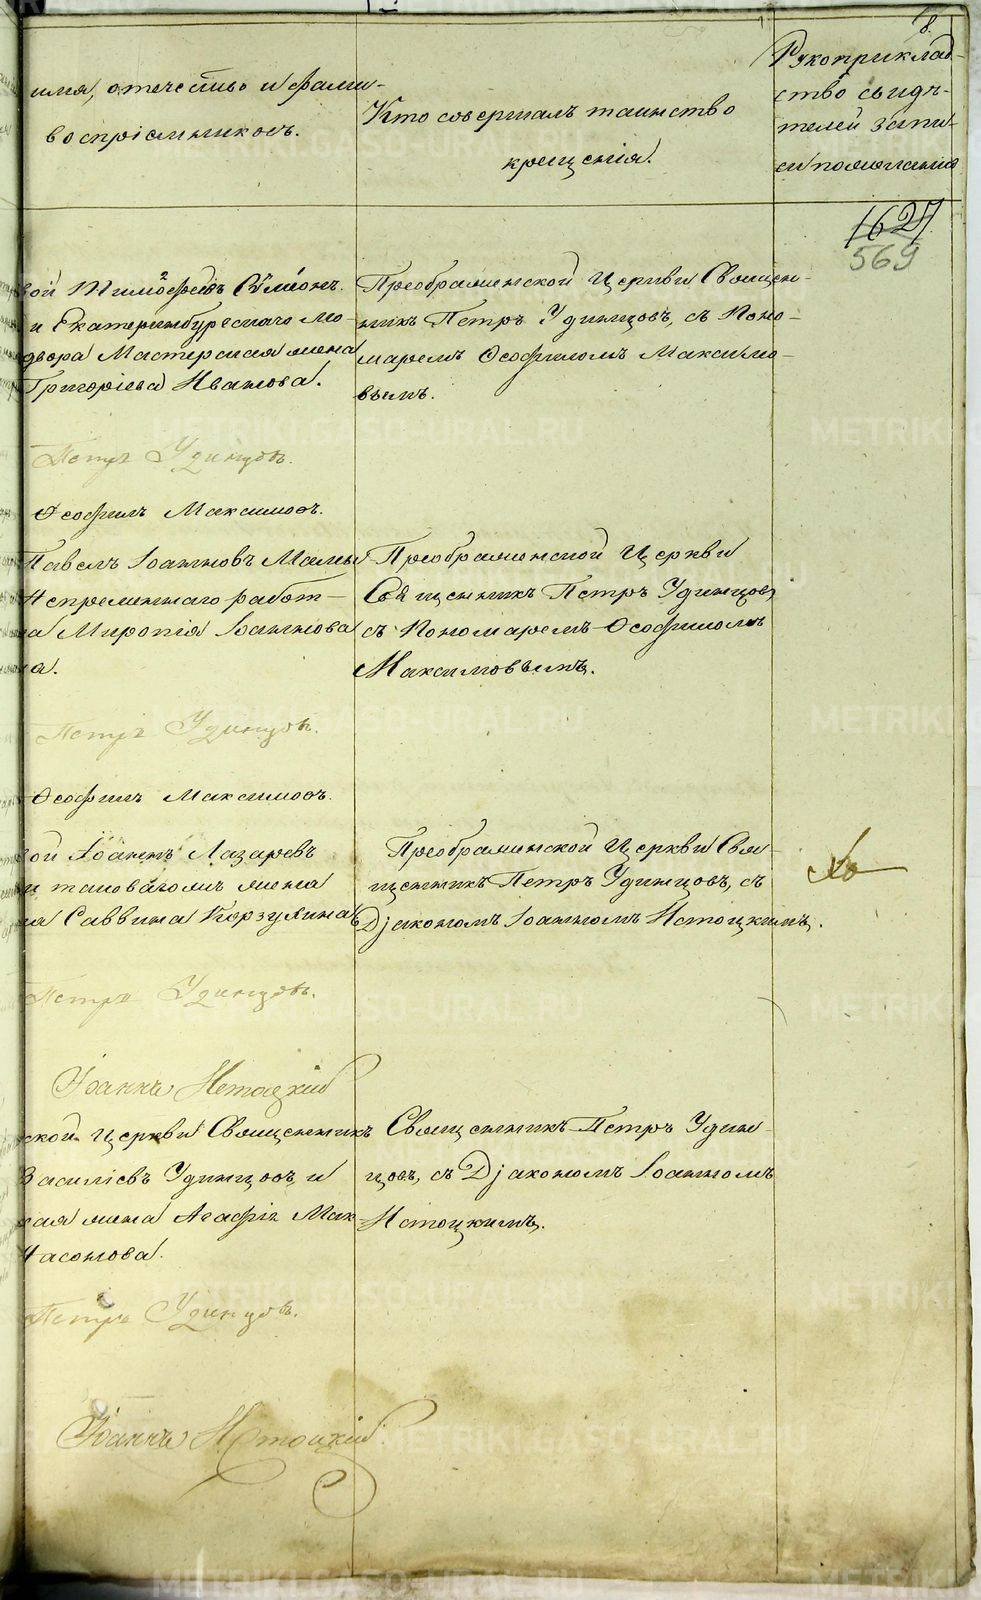 8.
имя, отечество и фами-
воспріемниковъ.
Кто совершалъ таинство
крещенія.
Рукоприклад-
ство свидѣ-
телей запи-
си по желанію
1627
569
вой Тимофеевъ Симеонъ.
и Екатеринбургскаго мо-
двора Мастерская жена
Григоріева Иванова.
Преображенской Церкви Священ-
никъ Петръ Удинцовъ, съ Поно-
маремъ Ѳеофиломъ Максимо-
вымъ.
Петръ Удинцовъ.
Ѳеофилъ Максимовъ.
Павелъ Іоанновъ
Непременнаго работ-
а Миропія Іоаннова
а.
Преображенской Церкви
Священникъ Петръ Удинцовъ
съ Пономаремъ Ѳеофиломъ
Максимовымъ.
Петръ Удинцовъ.
Ѳеофилъ Максимовъ.
вой Іоаннъ Лазаревъ
и таковагожъ жена
на Саввина Корзухина
Преображенской Церкви Свя-
щенникъ Петръ Удинцовъ, съ
Діакономъ Іоанномъ Истоцкимъ.
Петръ Удинцовъ.
Іоаннъ Истоцкій
ской Церкви Священникъ
Василіевъ Удинцовъ, и
кая жена Агафія Мак-
Часонова.
Священникъ Петръ Удин-
цовъ, съ Діакономъ Іоанномъ
Истоцкимъ.
Петръ Удинцовъ.
Іоаннъ Истоцкій
METRIKI.GASO-URAL.RU